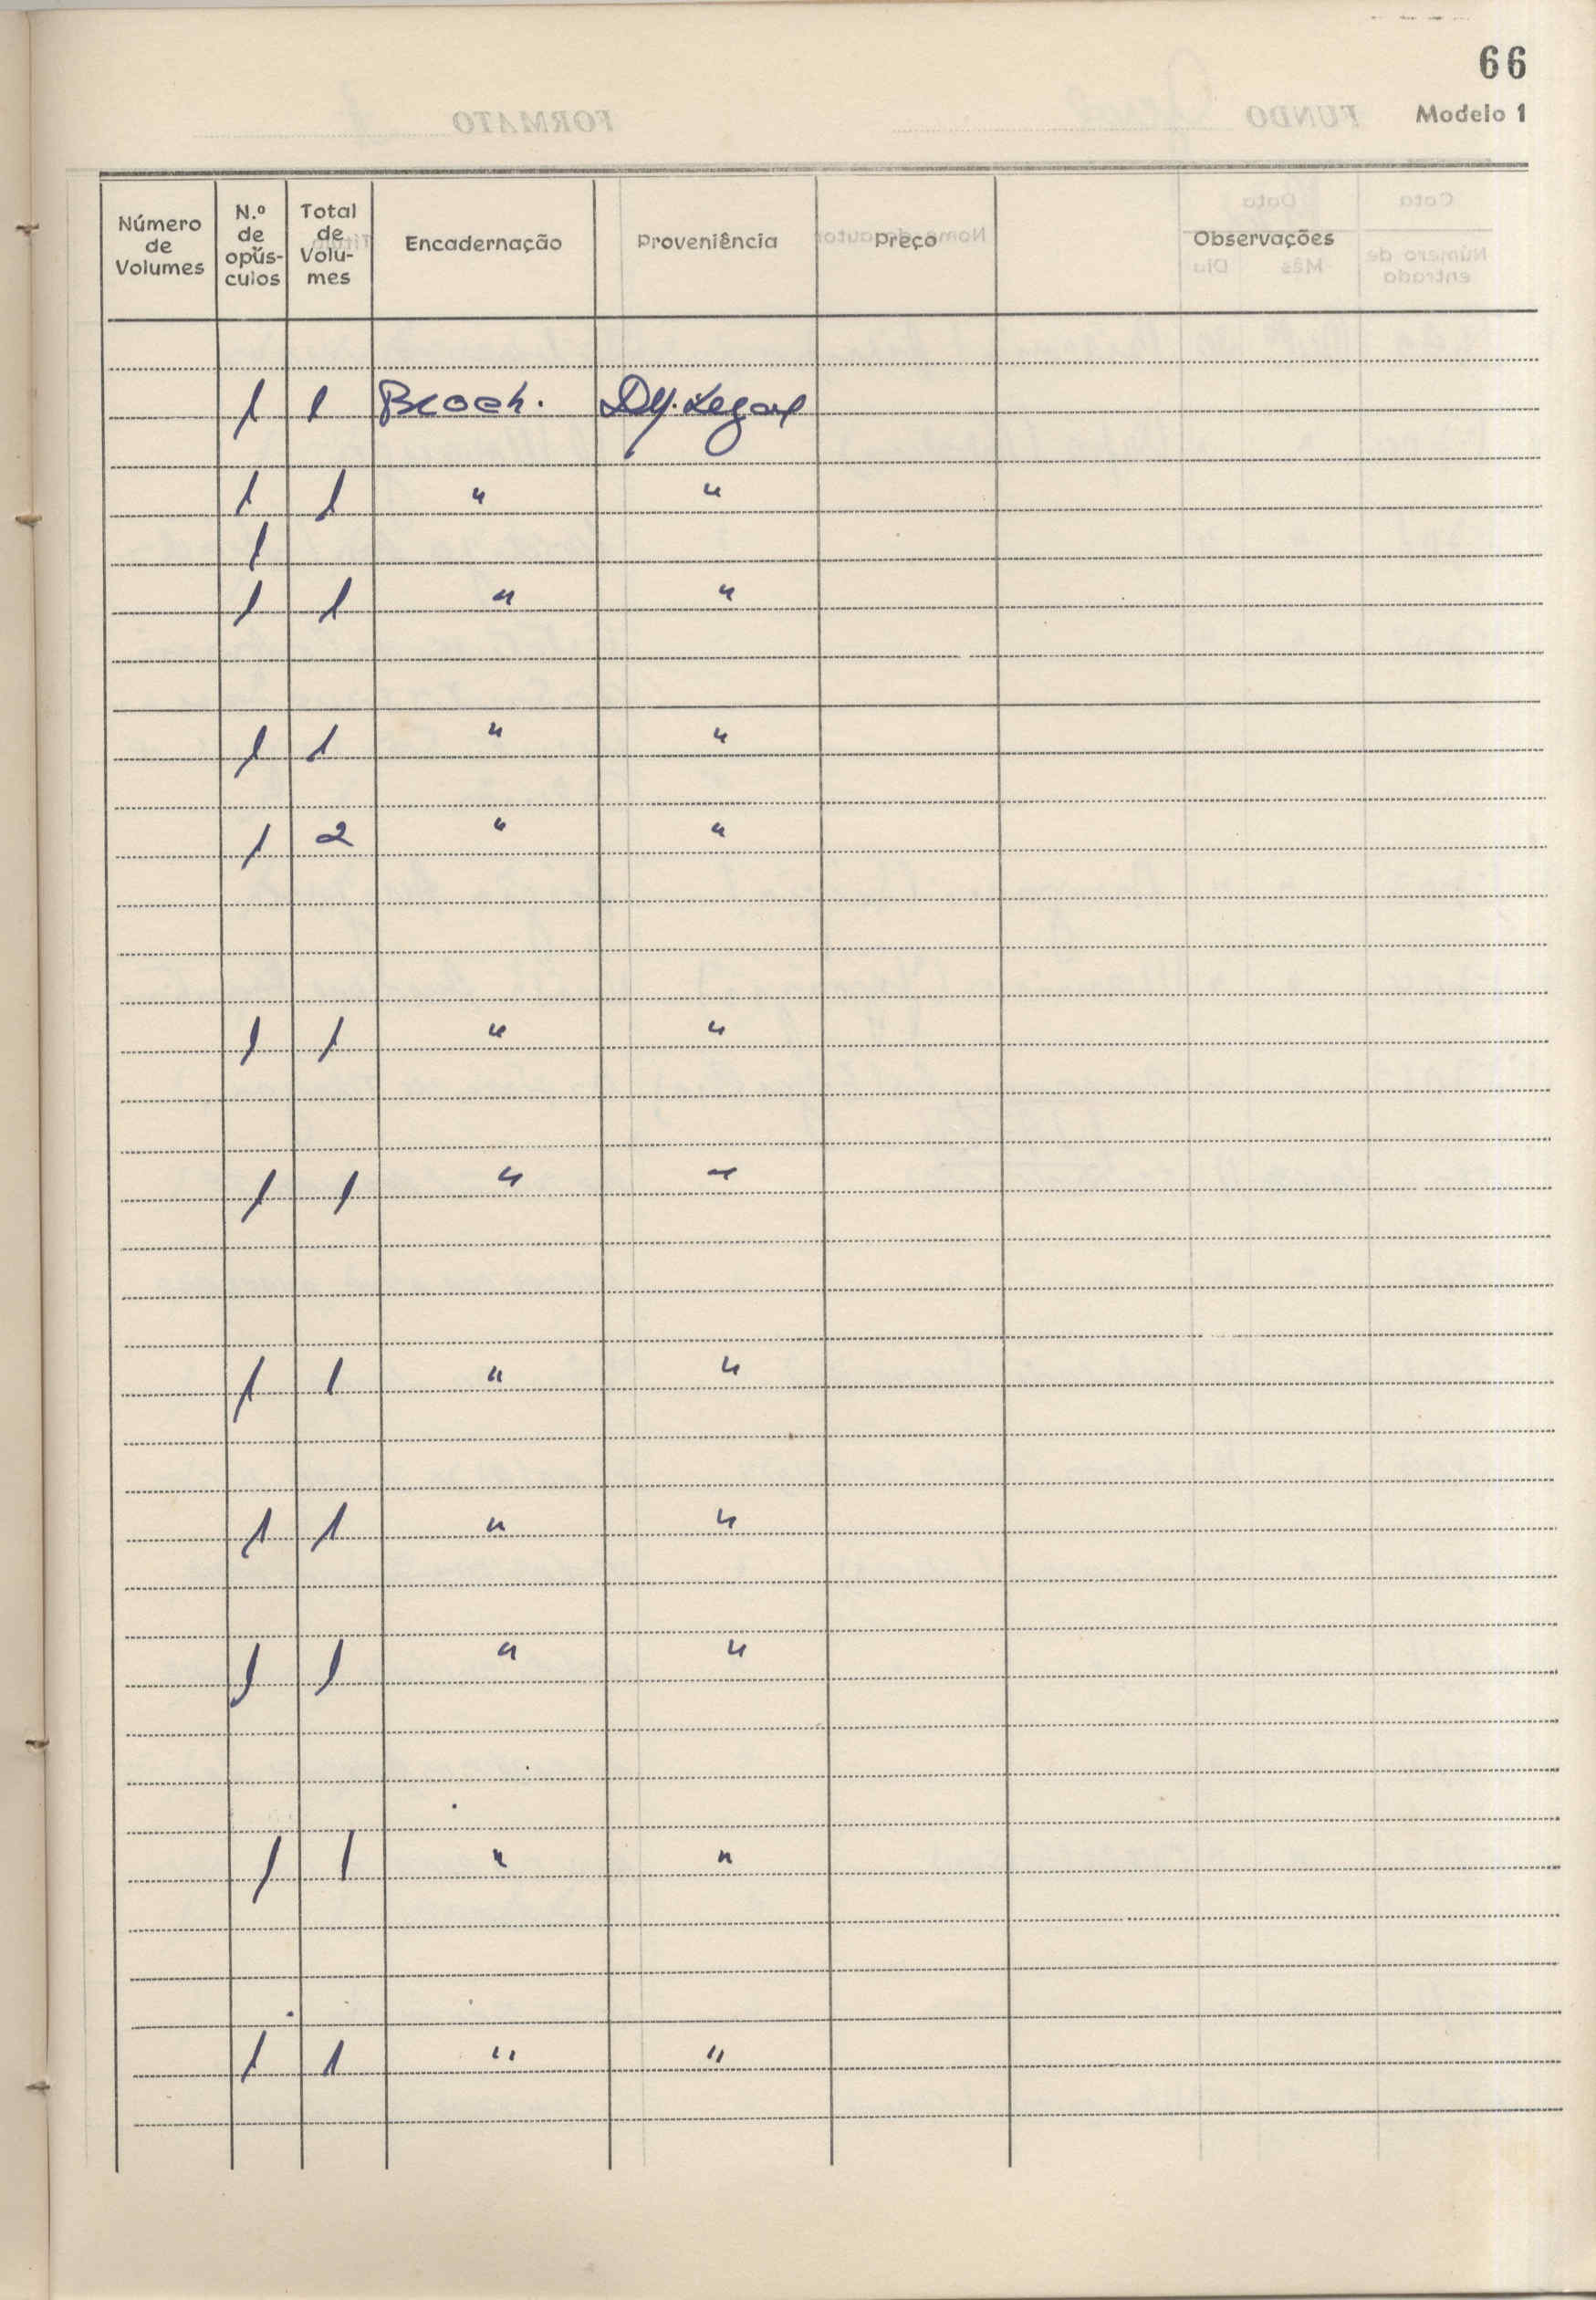 66
Modelo 1
Número de Volumes | N.º de opús-culos | Total de Volu-mes | Encadernação | Proveniência | Preço | Observações
1 1 Broch. Dp. Legal
1 1 " "
1
1 1 " "
1 1 " "
1 2 " "
1 1 " "
1 1 " "
1 1 " "
1 1 " "
1 1 " "
1 1 " "
1 1 " "